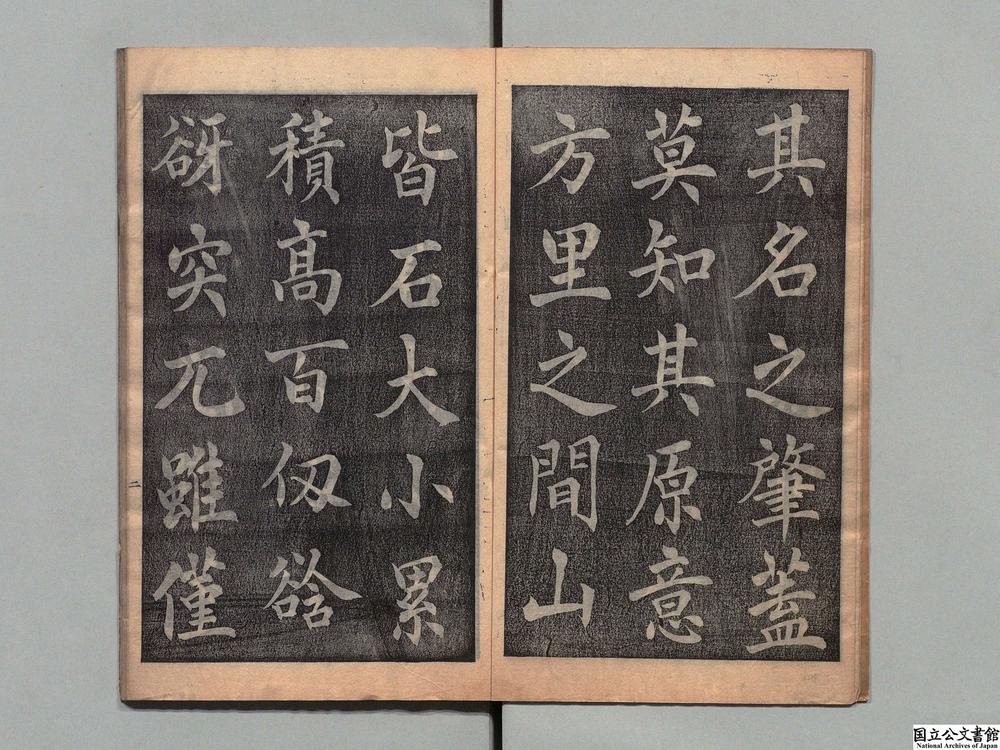 其名之肇蓋
莫知其原意
方里之間山
皆石大小累
積高百仭谽
谺突兀雖僅
国立公文書館
National Archives of Japan